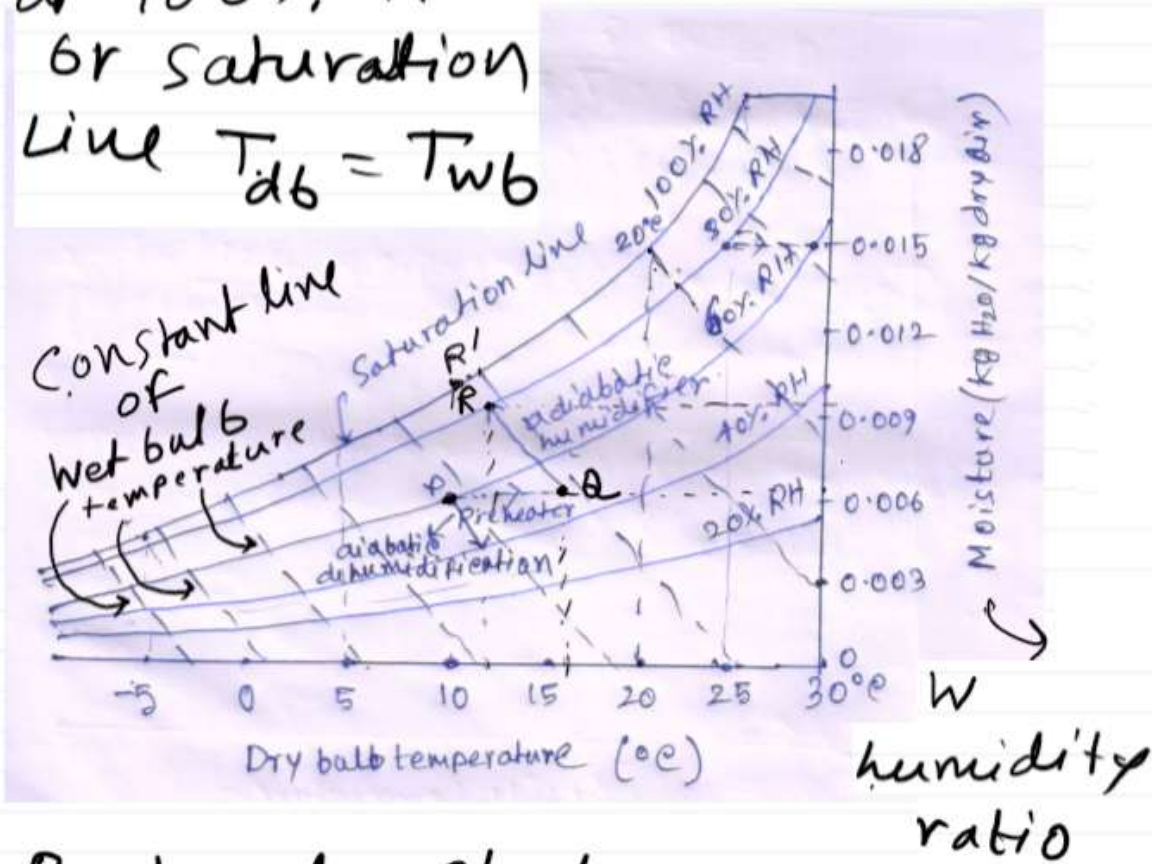 or saturation
Line Tdb = Twb
Constant line
of
wet bulb
temperature
Saturation line
100% RH
80% RH
60% RH
40% RH
20% RH
20°C
R'
R
adiabatic
humidifier
P
Q
Preheater
adiabatic
dehumidification
0.018
0.015
0.012
0.009
0.006
0.003
0
-5 0 5 10 15 20 25 30°C
Dry bulb temperature (°C)
Moisture (kg H2O/kg dry air)
W
humidity
ratio